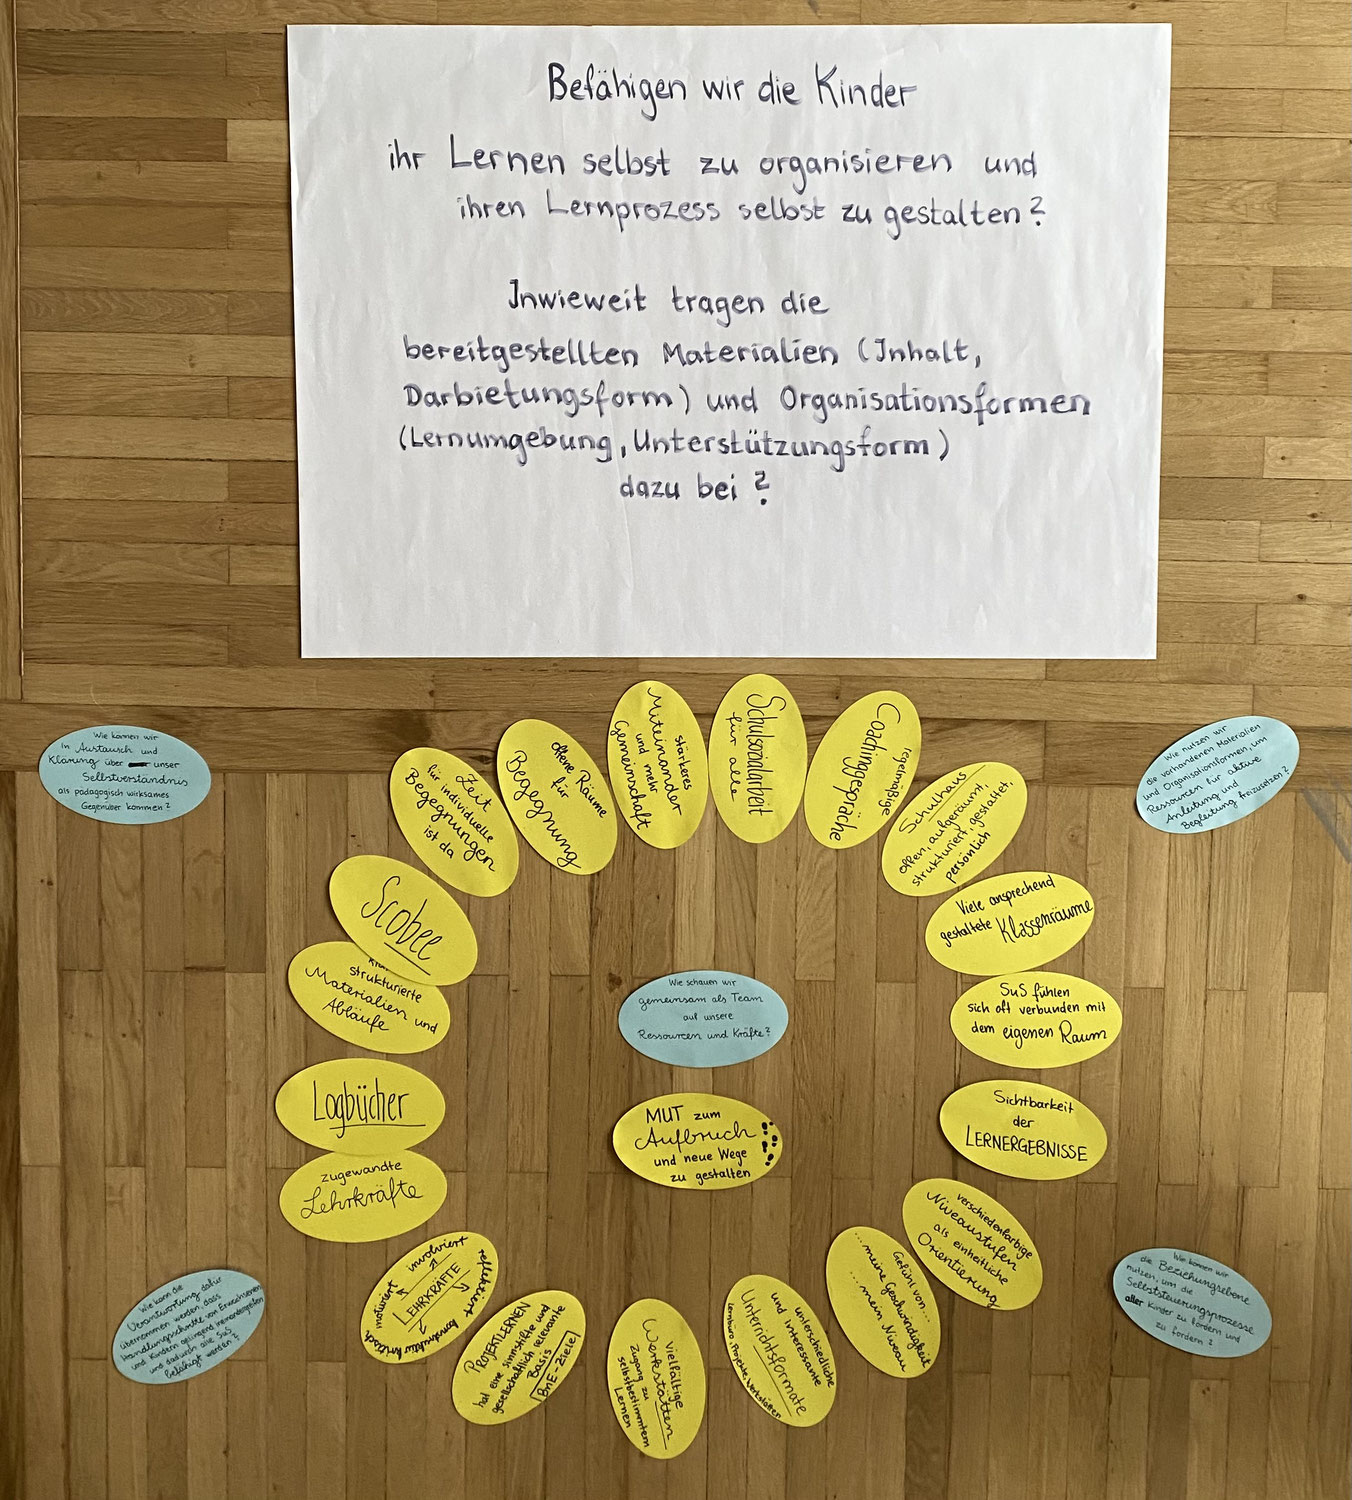 Befähigen wir die Kinder
ihr Lernen selbst zu organisieren und
ihren Lernprozess selbst zu gestalten?
Inwieweit tragen die
bereitgestellten Materialien (Inhalt,
Darbietungsform) und Organisationsformen
(Lernumgebung, Unterstützungsform)
dazu bei?
Wie können wir
in Austausch und
Klärung über unser
Selbstverständnis
als pädagogisch wirksames
Gegenüber kommen?
Zeit
für individuelle
Begegnungen
ist da
offene Räume
für
Begegnung
stärkeres
Miteinander
und mehr
Gemeinschaft
Schulsozialarbeit
für alle
regelmäßige
Coachinggespräche
Schulhaus
offen, aufgeräumt,
strukturiert, gestaltet,
persönlich
Wie nutzen wir
die vorhandenen Materialien
und Organisationsformen, um
Ressourcen für aktive
Anleitung und
Begleitung freizusetzen?
Scobee
Viele ansprechend
gestaltete Klassenräume
strukturierte
Materialien und
Abläufe
Wie schauen wir
gemeinsam als Team
auf unsere
Ressourcen und Kräfte?
SuS fühlen
sich oft verbunden mit
dem eigenen Raum
Logbücher
MUT zum
Aufbruch
und neue Wege
zu gestalten
Sichtbarkeit
der
LERNERGEBNISSE
zugewandte
Lehrkräfte
verschiedenfarbige
Niveaustufen
als einheitliche
Orientierung
motiviert
involviert
reflektiert
LEHRKRÄFTE
konstruktiv kritisch
Gefühl von...
...meine Geschwindigkeit
...mein Niveau
Wie kann die
Verantwortung dafür
übernommen werden, dass
Handlungsschritte von Erwachsenen
und Kindern gelingend ineinandergreifen
und dadurch alle SuS
befähigt werden?
PROJEKTLERNEN
hat eine sinnstifte und
gesellschaftlich relevante
Basis
(BnE-Ziele)
vielfältige
Werkstätten
Zugang zu
selbstbestimmtem
Lernen
unterschiedliche
und interessante
Unterrichtsformate
Lernbüro, Projekte, Werkstätten
Wie können wir
die Beziehungsebene
nutzen, um die
Selbststeuerungsprozesse
aller Kinder zu fordern und
zu fördern?